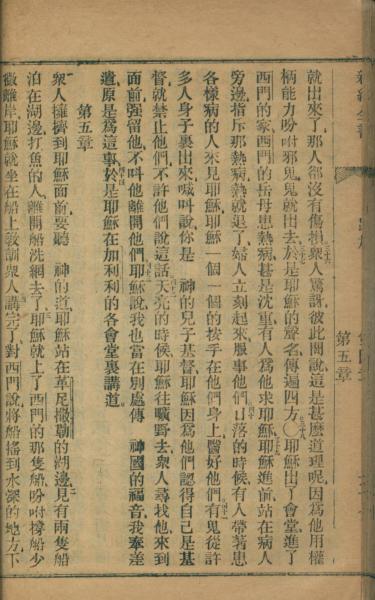 就出來了、那人都沒有傷損、衆人驚訝、彼此間說、這是甚麼道理呢、因爲他用權
柄能力吩咐邪鬼、鬼就出去、於是耶穌的聲名傳遍四方〇耶穌出了會堂、進了
西門的家、西門的岳母患熱病甚是沈重、有人爲他求耶穌、耶穌進前站在病人
旁邊、指斥那熱病、熱就退了、婦人立刻起來服事他們、日落的時候、有人帶著患
各樣病的人來見耶穌、耶穌一個一個的按手在他們身上、醫好他們、有鬼從許
多人身子裏出來、喊叫說、你是 神的兒子基督、耶穌因爲他們認得自己是基
督、就禁止他們、不許他們說這話、天亮的時候、耶穌往曠野去、衆人尋找他、來到
面前、強留他、不叫他離開他們、耶穌說、我也當在別處傳 神國的福音、我奉差
遣原是爲這事、於是耶穌在加利利的各會堂裏講道、
第五章
衆人擁擠到耶穌面前、要聽 神的道、耶穌站在革尼撒勒的湖邊、見有兩隻船
泊在湖邊、打魚的人、離開船洗網去了、耶穌就上了西門的那隻船、吩咐撐船少
微離岸、耶穌就坐在船上、敎訓衆人、講完了、對西門說、將船搖到水深的地方、下
第五章